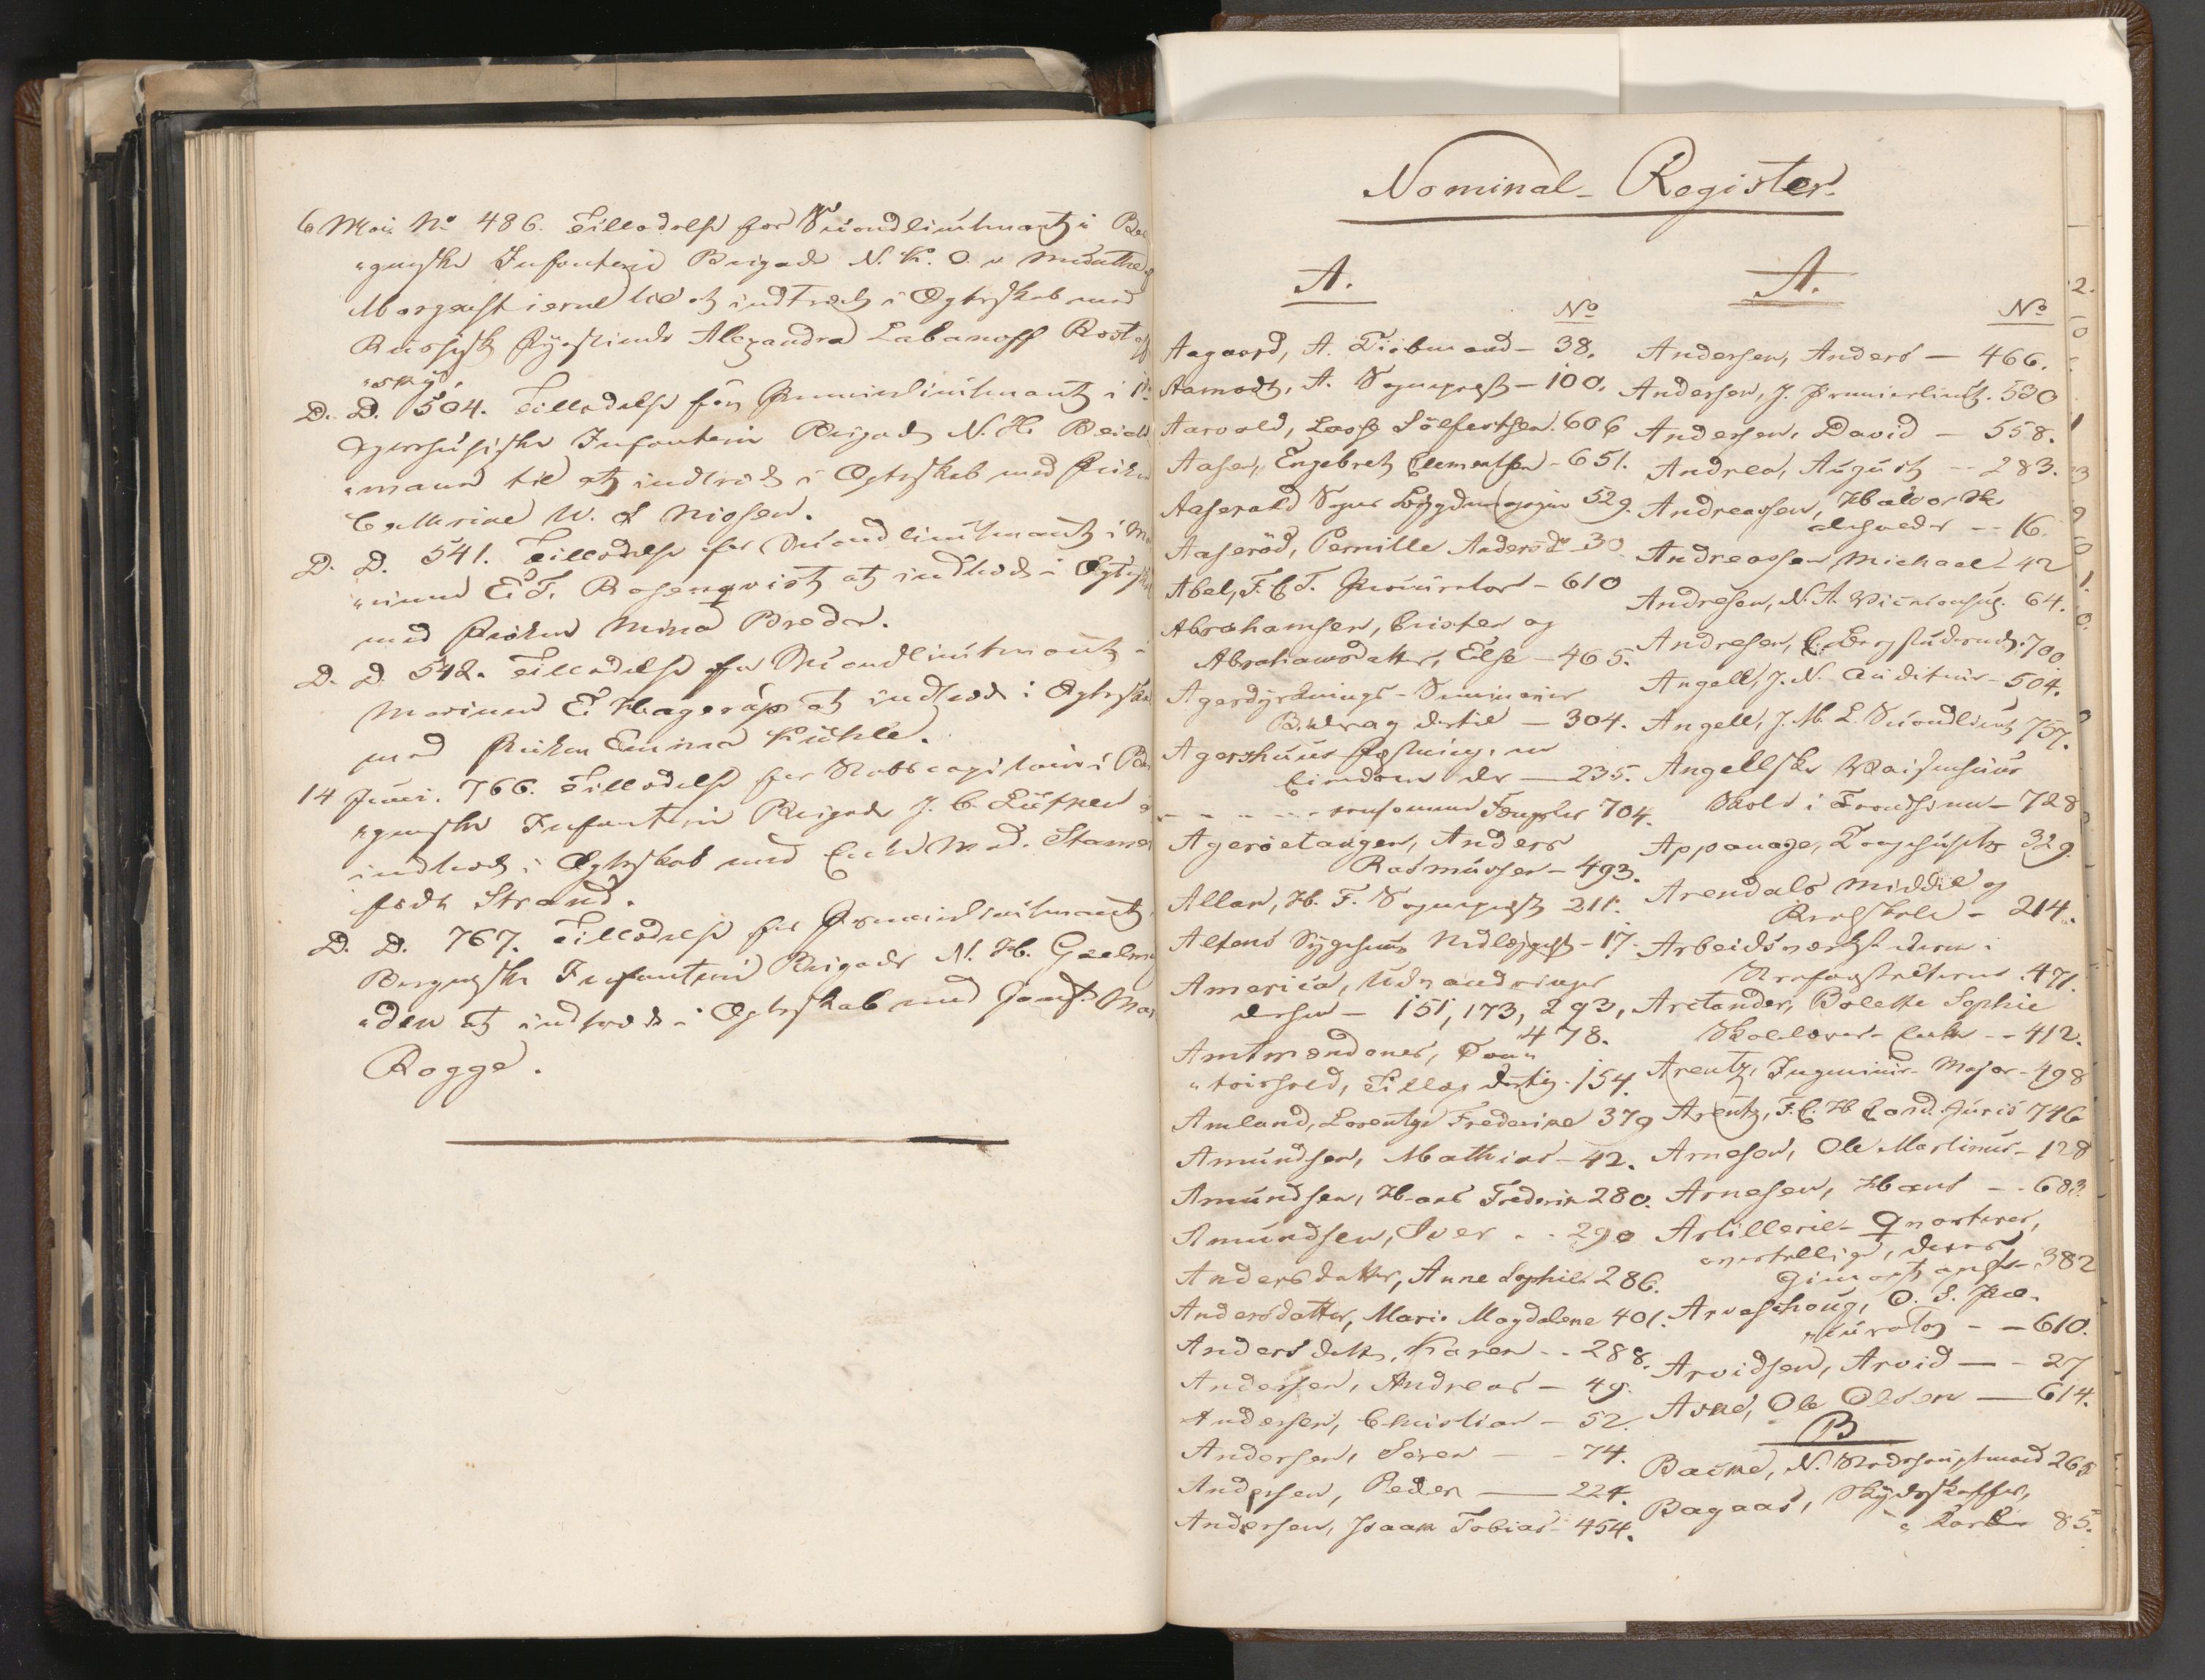 6 Mai No 486. Tilladelse for Secondlieutenant i Ber
"genske Infanterie Brigade N. K. O. v Munthe af
Morgenstierne til at indtræde i Ægteskab med
Russisk Fyrstinde Alexandra Labanoff Rostoff
"sky.
D. D. 504. Tilladelse for Premierlieutenant i 1ste
Agershusiske Infanterie Brigade N. H. Reich
"mann til at indtræde i Ægteskab med Frøken
Cathrine W. d Niosen.
D. D. 541. Tilladelse for Secondlieutenant i Ma
"rinen E. T. Rosenqvist at indtræde i Ægteskab
med Frøken Mina Breda.
D. D. 542. Tilladelse for Secondlieutenant i
Marinen E Hagerup at indtræde i Ægteskab
med Frøken Emma Kühle.
14 Juni. 766. Tilladelse for Stabscapitain i Ber
"genske Infanterie Brigade J. C. Lütken at
indtræde i Ægteskab med Enke Mad. Stamer
født Strand.
D. D. 767. Tilladelse for Premierlieutenant i
Bergenske Infanterie Brigade N. H. Geelmuy
"den at indtræde i Ægteskab med Jomf. Mar
Rogge.
Nominal-Register.
A.
No
Aagaard, A. Kiøbmand - 38.
Aamodt, A. Sogneprest - 100.
Aarvold, Lasse Sölfestsen. 606
Aasen, Engebret Clementsen - 651.
Aaserald Sogns 529.
Aaseröd, Pernille Andersdr 30
Abel, F. C. T. Procurator - 610
Abrahamsen, Christen og
Abrahamsdatter, Else - 465.
Agerdyrknings-Seminarier
Bidrag dertil - 304.
Agershuus Fæstning, en
Eiendom der - 235.
- - - - - Fængsler 704.
Agerøetangen, Anders
Rasmussen - 493.
Allan, H. F. Sogneprest 211.
Altens Sygehuus Nedlæggelse - 17.
America, Udvandringer
dersen - 151, 173, 293,
478.
Amtmændenes, Con"
"toirhold, Tillæg dertil. 154.
Amland, Lorentze Frederike 379
Amundsen, Mathias - 42.
Amundsen, Hans Frederik 280.
Amundsen, Iver - - 290
Andersdatter, Anne Sophie 286.
Andersdatter, Marie Magdalene 401.
Andersdatter, Karen - - 288.
Andersen, Andreas - 49.
Andersen, Christian - 52.
Andersen, Sören - - 74.
Andersen, Peder - 224.
Andersen, Isaak Tobias - 454.
A.
No
Andersen, Anders - 466.
Andersen, J. Premierlieut. 530
Andersen, David - 558.
Andrea, August - - 283.
Andreassen, Halvor
- - 16.
Andreassen, Michael - 42
Andresen, N. A. Viceconsul. 64.
Andresen, C. Bergstuderende. 700.
Angell, J. N. Auditeur - 504.
Angell, J. M. L. Secondlieut 757.
Angellske Waisenhuus
Skole i Trondhjem - 728
Appanage, Kongehusets 329.
Arendals Middel og
Realskole - 214.
Arbeidsværksteder i
Strafanstalterne. 471.
Arctander, Bolette Sophie
Skolelærer-Enke - - 412.
Arentz, Ingenieur-Major - 498
Arentz, F. C. H Cand. Juris 746
Arnesen, Ole Martinus - 128
Arnesen, Hans - - 683.
Artillerie-Qvarterer,
overtallige, deres
382
Arveschoug, O. S. Pro-
"curator - - 610.
Arvidsen, Arvid - - 27
Aske, Ole Olsen - 614.
B
Backe, N. Stadshauptmand 265
Bagaas, Skydsskaffer,
85.